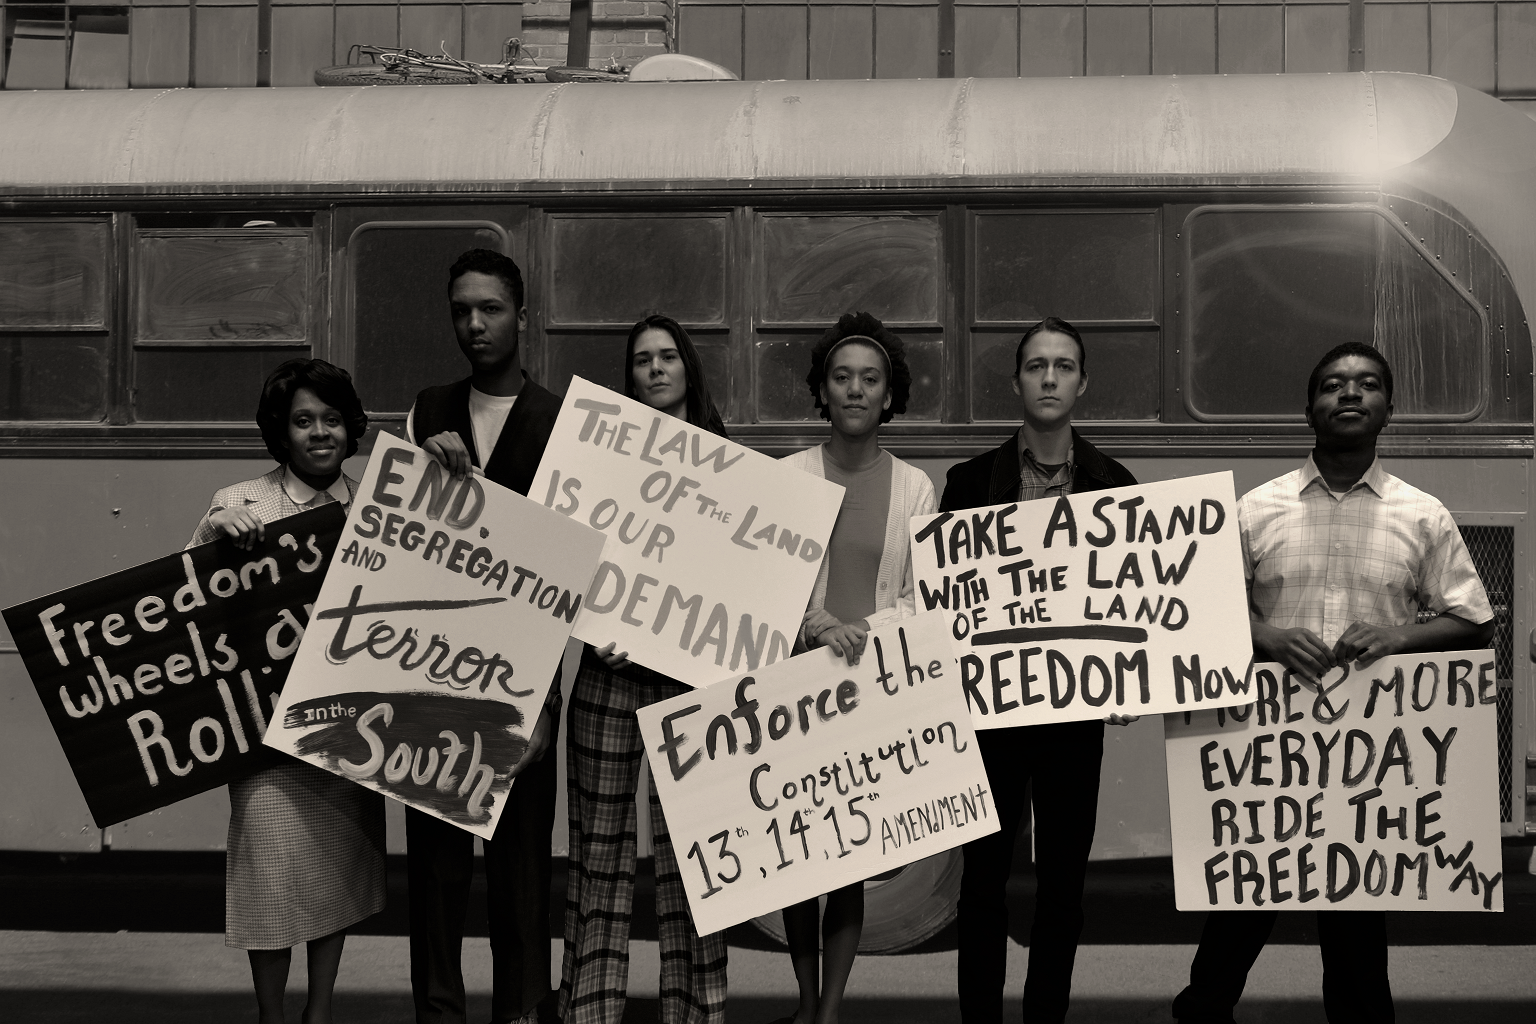 Freedom's
wheels
Rolli
END.
SEGREGATION
AND
terror
in the
South
THE LAW
OF THE LAND
IS OUR
DEMAND
Enforce the
Constitution
13th, 14th, 15th AMENdMENT
TAKE A STAND
WITH THE LAW
OF THE LAND
REEDOM NOW
MORE & MORE
EVERYDAY
RIDE THE
FREEDOM WAY